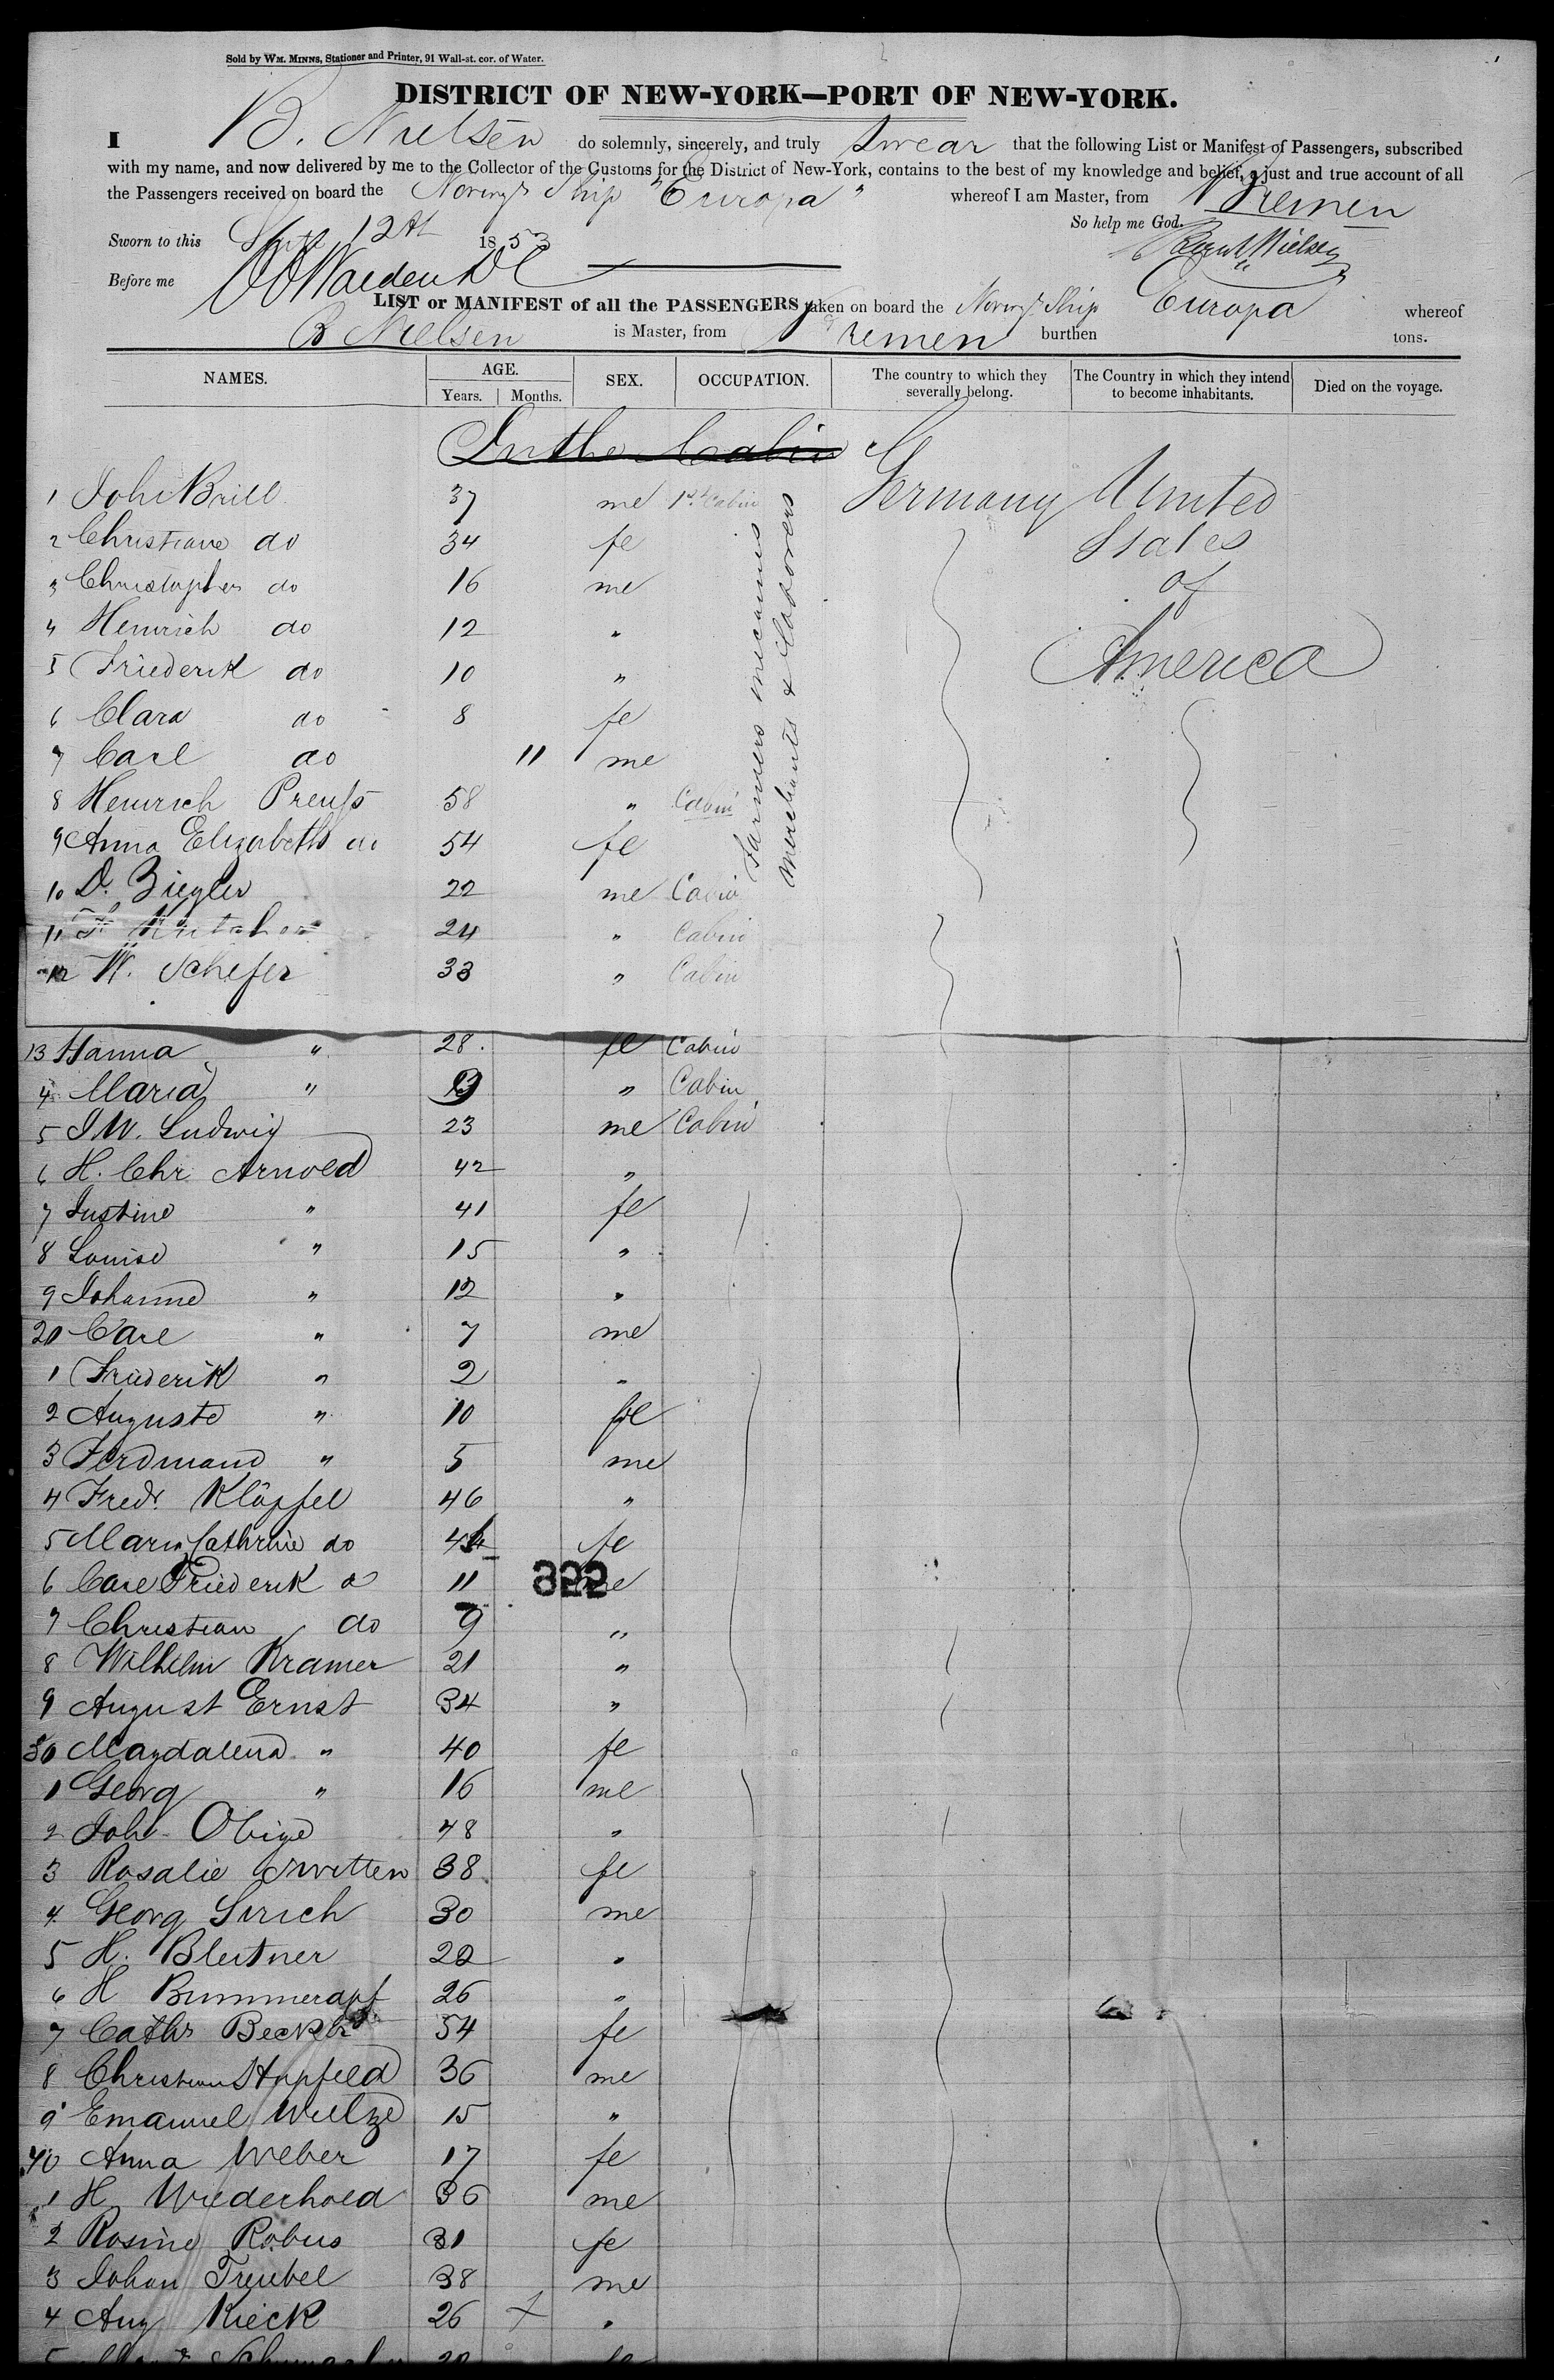 Sold by WM. MINNS, Stationer and Printer, 91 Wall-st. cor. of Water.
DISTRICT OF NEW-YORK—PORT OF NEW-YORK.
I B. Nielsen do solemnly, sincerely, and truly swear that the following List or Manifest of Passengers, subscribed
with my name, and now delivered by me to the Collector of the Customs for the District of New-York, contains to the best of my knowledge and belief, a just and true account of all
the Passengers received on board the Norwg. Ship "Europa" whereof I am Master, from Bremen
So help me God.
Sworn to this 12th 1853 Nielsen
Before me
LIST or MANIFEST of all the PASSENGERS taken on board the Norwg. Ship Europa whereof
B Nielsen is Master, from Bremen burthen tons.
NAMES. AGE. Years. Months. SEX. OCCUPATION. The country to which they severally belong. The Country in which they intend to become inhabitants. Died on the voyage.
In the Cabin
1 Joh Brill 37 me 1st Cabin Germany United
2 Christiane do 34 fe States
3 Christopher do 16 me of
4 Heinrich do 12 "
5 Friederik do 10 " America
6 Clara do 8 fe
7 Carl do 11 me
8 Heinrich Preuſs 58 " Cabin
9 Anna Elizabeth do 54 fe
10 D. Ziegler 22 me Cabin
11 24 " Cabin
12 W. Schefer 33 " Cabin
Farmers mecanics
merchants & Laborers
13 Hanna " 28. fe Cabin
4 Maria " " Cabin
5 J W. Ludwig 23 me Cabin
6 H. Chr. Arnold 42 "
7 Justine " 41 fe
8 Louise " 15 "
9 Johanne " 12 "
20 Carl " 7 me
1 Friederik " 2 "
2 Auguste " 10 fe
3 Ferdinand " 5 me
4 Fredr. Klöpfel 46 "
5 Maria Cathrine do fe
6 Carl Friederik do 11 me
822
7 Christian do 9 "
8 Wilhelm Kramer 21 "
9 August Ernst 34 "
30 Magdalena " 40 fe
1 Georg " 16 me
2 Joh. 48 "
3 Rosalie 38 fe
4 Georg 30 me
5 H. Bleitner 22 "
6 H 26 "
7 Cathr Becker 54 fe
8 Christian Hupfeld 36 me
9 Emanuel 15 "
40 Anna Weber 17 fe
1 H. Wiederhold 36 me
2 Rosine Robus 31 fe
3 Johan Treubel 38 me
4 Aug Kieck 26 "
5